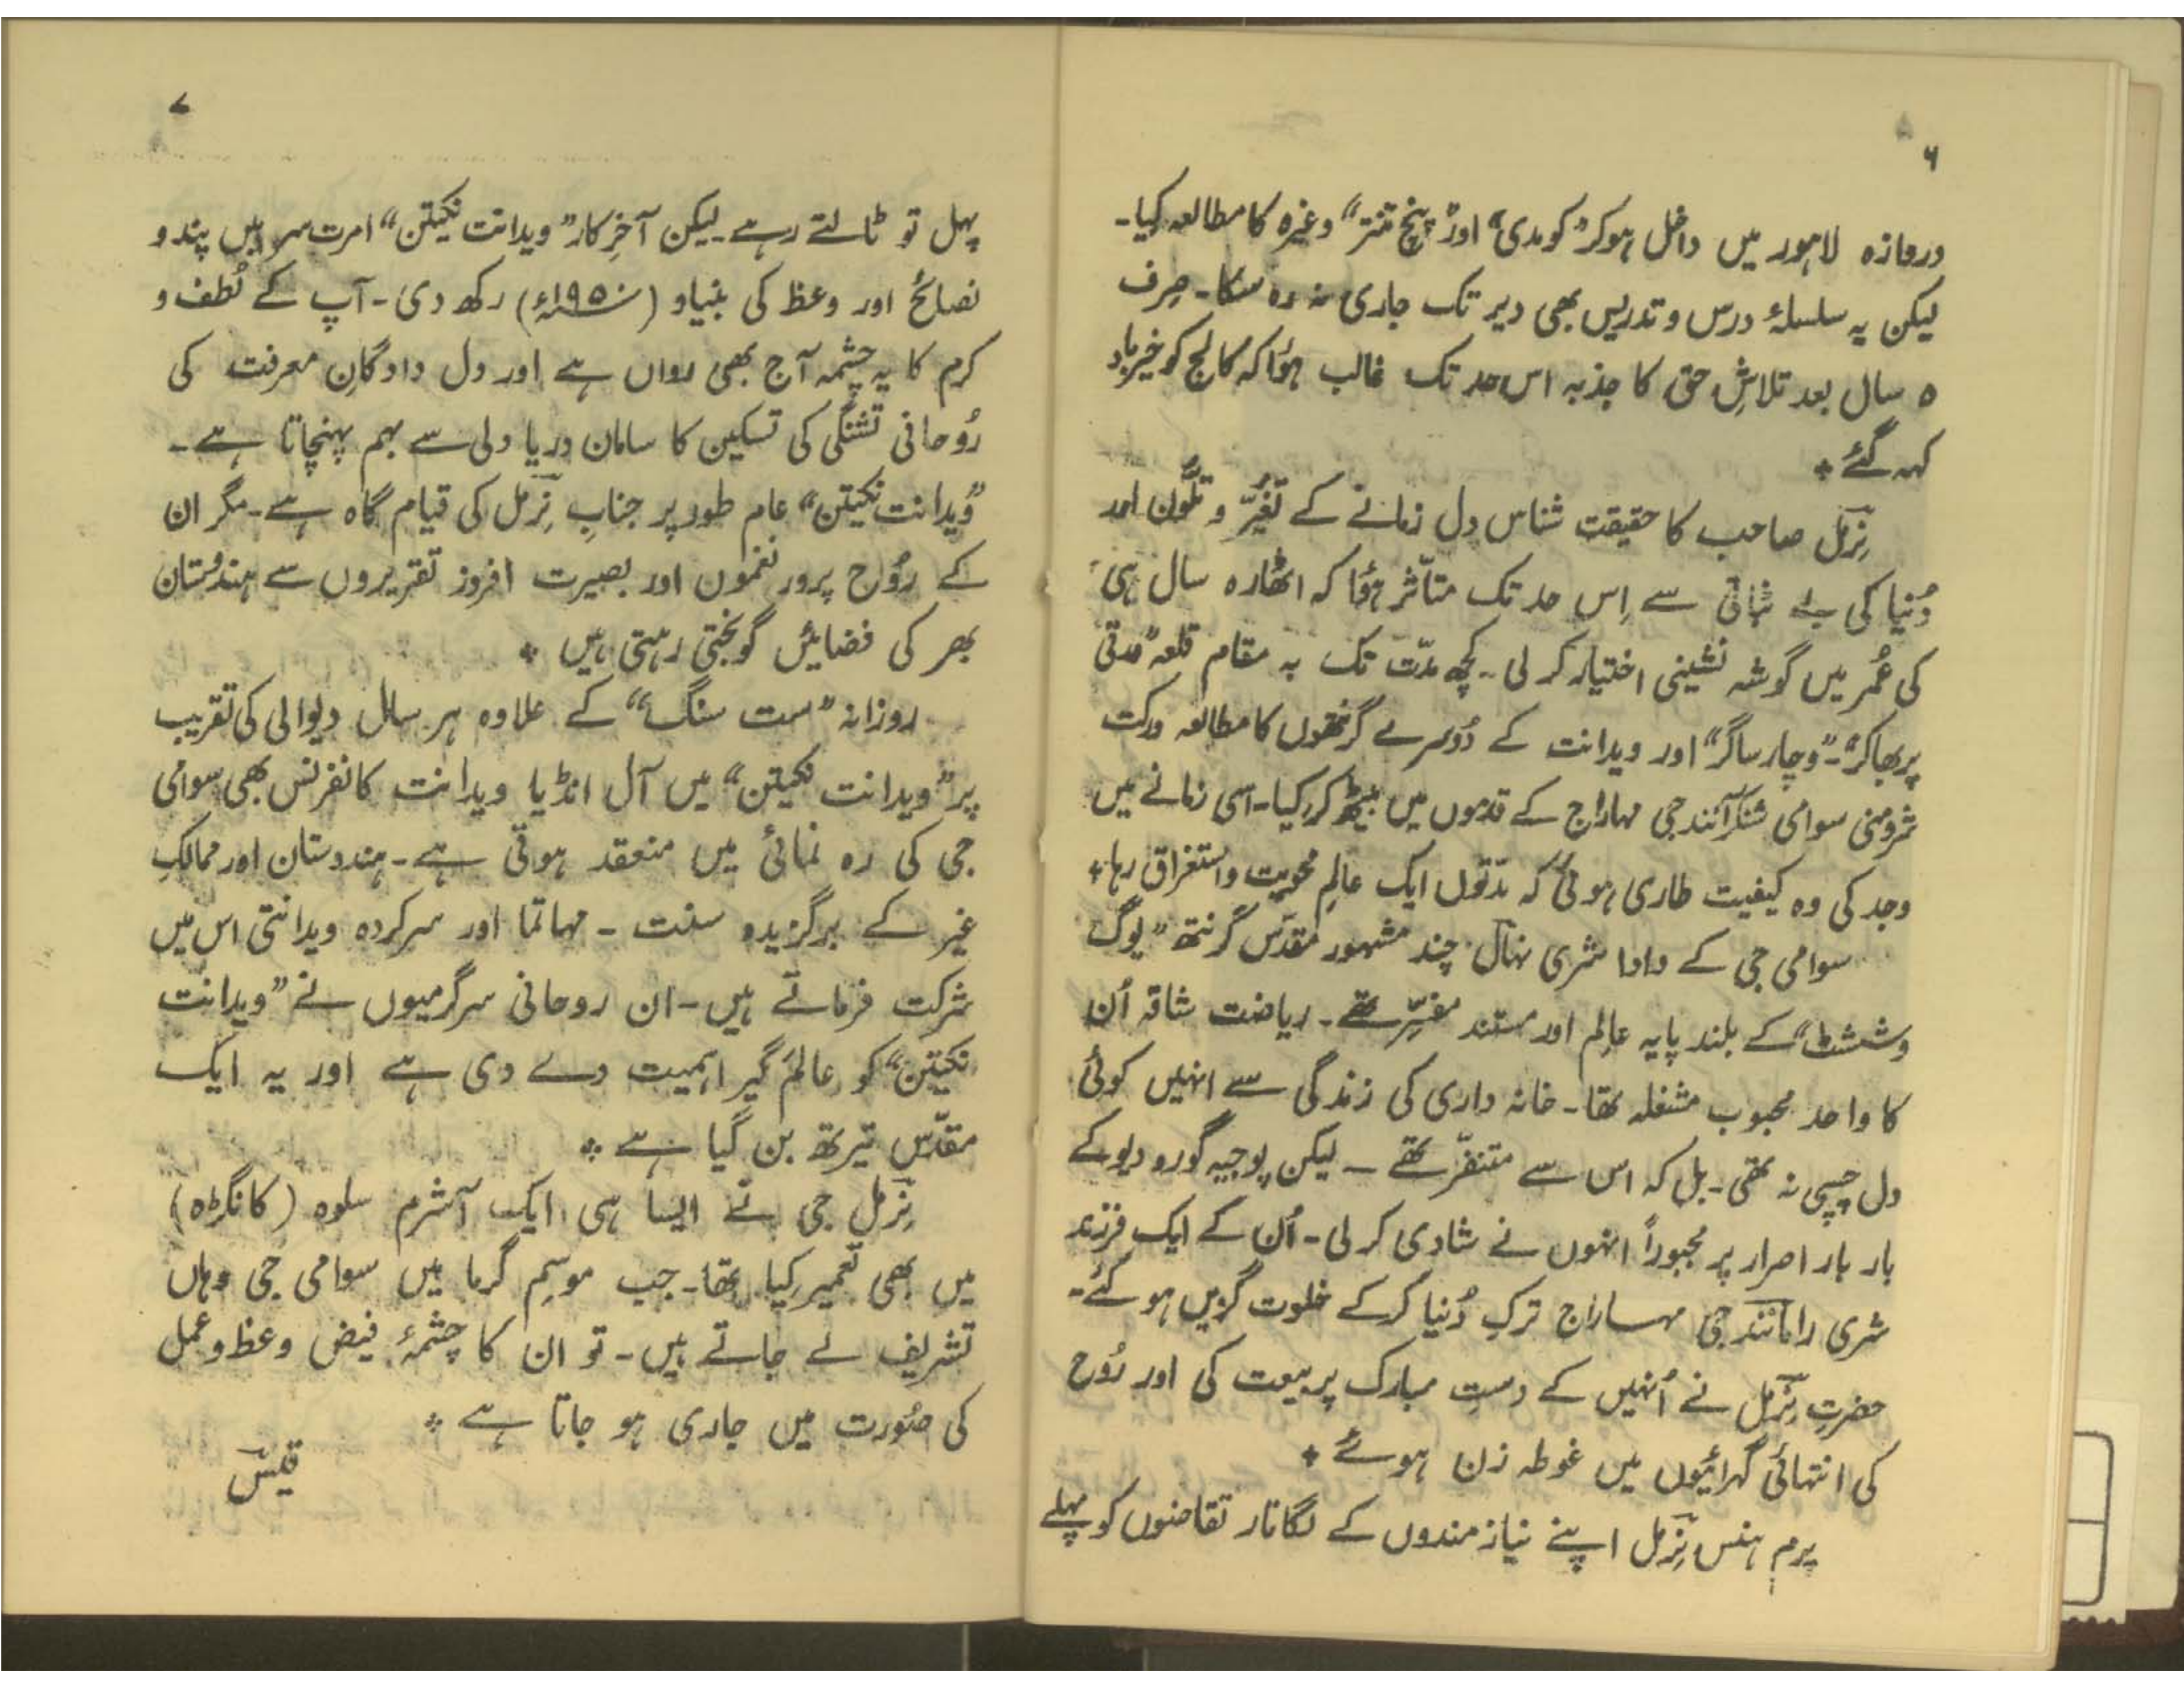 ۶
دروازہ لاہور میں داخل ہوکر "کومدی" اور "پنچ تنتر" وغیرہ کا مطالعہ کیا۔
لیکن یہ سلسلۂ درس و تدریس بھی دیر تک جاری نہ رہ سکا۔ صِرف
۵ سال بعد تلاشِ حق کا جذبہ اس حد تک غالب ہؤا کہ کالج کو خیرباد
کہہ گئے *
نِرمل صاحب کا حقیقت شناس دل زمانے کے تغیُّر و تلوُّن اور
دُنیا کی بے ثباتی سے اِس حد تک متاثر ہؤا کہ اٹھارہ سال ہی
کی عُمر میں گوشہ نشینی اختیار کر لی۔ کچھ مدّت تک بہ مقام قلعہ "ورتی
پربھاکر"۔ "وچار ساگر" اور ویدانت کے دُوسرے گرنتھوں کا مطالعہ ورکت
شرومنی سوامی شنکرآنند جی مہاراج کے قدموں میں بیٹھ کر کیا۔ اسی زمانے میں
وجد کی وہ کیفیت طاری ہوئی کہ مدّتوں ایک عالمِ محویت و استغراق رہا *
سوامی جی کے دادا شری نہال چند مشہور مقدّس گرنتھ "یوگ
وششٹ" کے بلند پایہ عالِم اور مستند مفسِّر تھے۔ ریاضت شاقہ اُن
کا واحد محبوب مشغلہ تھا۔ خانہ داری کی زندگی سے انہیں کوئی
دل چسپی نہ تھی۔ بل کہ اس سے متنفّر تھے ۔ لیکن پوجیہ گورو دیو کے
بار بار اصرار پر مجبوراً انہوں نے شادی کر لی۔ اُن کے ایک فرزند
شری رامانند جی مہاراج ترکِ دُنیا کرکے خلوت گزیں ہو گئے۔
حضرتِ نِرمل نے اُنہیں کے دستِ مبارک پر بیعت کی اور رُوح
کی انتہائی گہرائیوں میں غوطہ زن ہوئے *
پرم ہنس نِرمل اپنے نیازمندوں کے لگاتار تقاضوں کو پہلے
۷
پہل تو ٹالتے رہے۔ لیکن آخرِ کار "ویدانت نکیتن" امرت سر میں پند و
نصائح اور وعظ کی بنیاد (۱۹۵۰ء) رکھ دی۔ آپ کے لُطف و
کرم کا یہ چشمہ آج بھی رواں ہے اور دل دادگانِ معرفت کی
رُوحانی تشنگی کی تسکین کا سامان دریا دلی سے بہم پہنچاتا ہے۔
"ویدانت نکیتن" عام طور پر جنابِ نِرمل کی قیام گاہ ہے۔ مگر ان
کے رُوح پرور نغموں اور بصیرت افروز تقریروں سے ہندُستان
بھر کی فضائیں گونجتی رہتی ہیں *
روزانہ "ست سنگ" کے علاوہ ہر سال دیوالی کی تقریب
پر "ویدانت نکیتن" میں آل انڈیا ویدانت کانفرنس بھی سوامی
جی کی رہ نمائی میں منعقد ہوتی ہے۔ ہندوستان اور ممالکِ
غیر کے برگزیدہ سنت ۔ مہاتما اور سرکردہ ویدانتی اس میں
شرکت فرماتے ہیں۔ ان روحانی سرگرمیوں نے "ویدانت
نکیتن" کو عالم گیر اہمیت دے دی ہے اور یہ ایک
مقدّس تیرتھ بن گیا ہے *
نِرمل جی نے ایسا ہی ایک آشرم سلوہ (کانگڑہ)
میں بھی تعمیر کیا تھا۔ جب موسمِ گرما میں سوامی جی وہاں
تشریف لے جاتے ہیں۔ تو ان کا چشمۂ فیض وعظ و عمل
کی صُورت میں جاری ہو جاتا ہے *
قیس